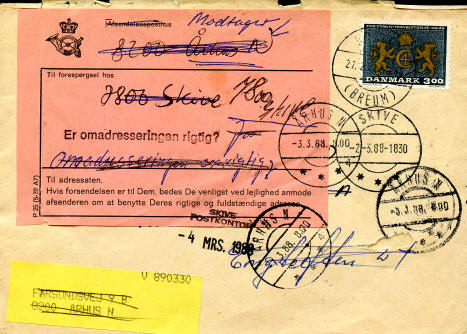 Afsendelsesposthus
Modtager
8200 Århus N
Til forespørgsel hos
7800 Skive
7800
Er omadresseringen rigtig?
Ja
omadresseringen er rigtig
Til adressaten.
Hvis forsendelsen er til Dem, bedes De venligst ved lejlighed anmode
afsenderen om at benytte Deres rigtige og fuldstændige adresse.
P 25 (5-78 A7)
DANMARK 3.00
(BREUM)
ÅRHUS N
-3.3.88.-8.00
SKIVE
-2-3.88-1830
ÅRHUS N
-3.3.88.-8.00
SKIVE
POSTKONTOR
-4 MRS. 1988
ÅRHUS N
3.88.-8.00
V 890330
FARSUNDSVEJ 9 B
8200 ÅRHUS N